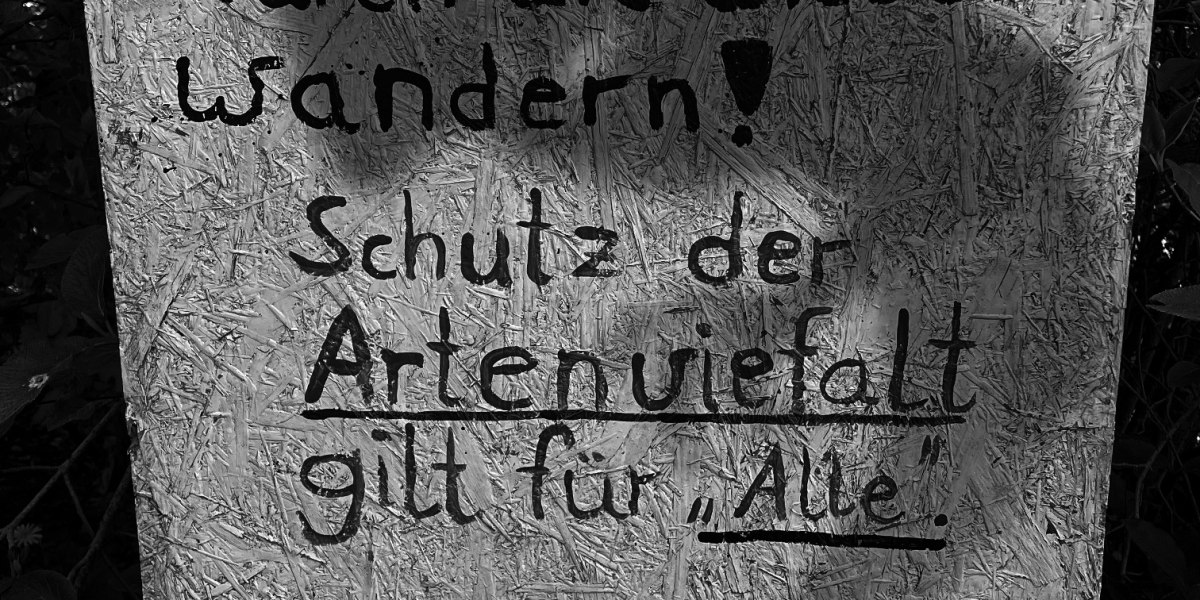 wandern!
Schutz der
Artenviefalt
gilt für „Alle".